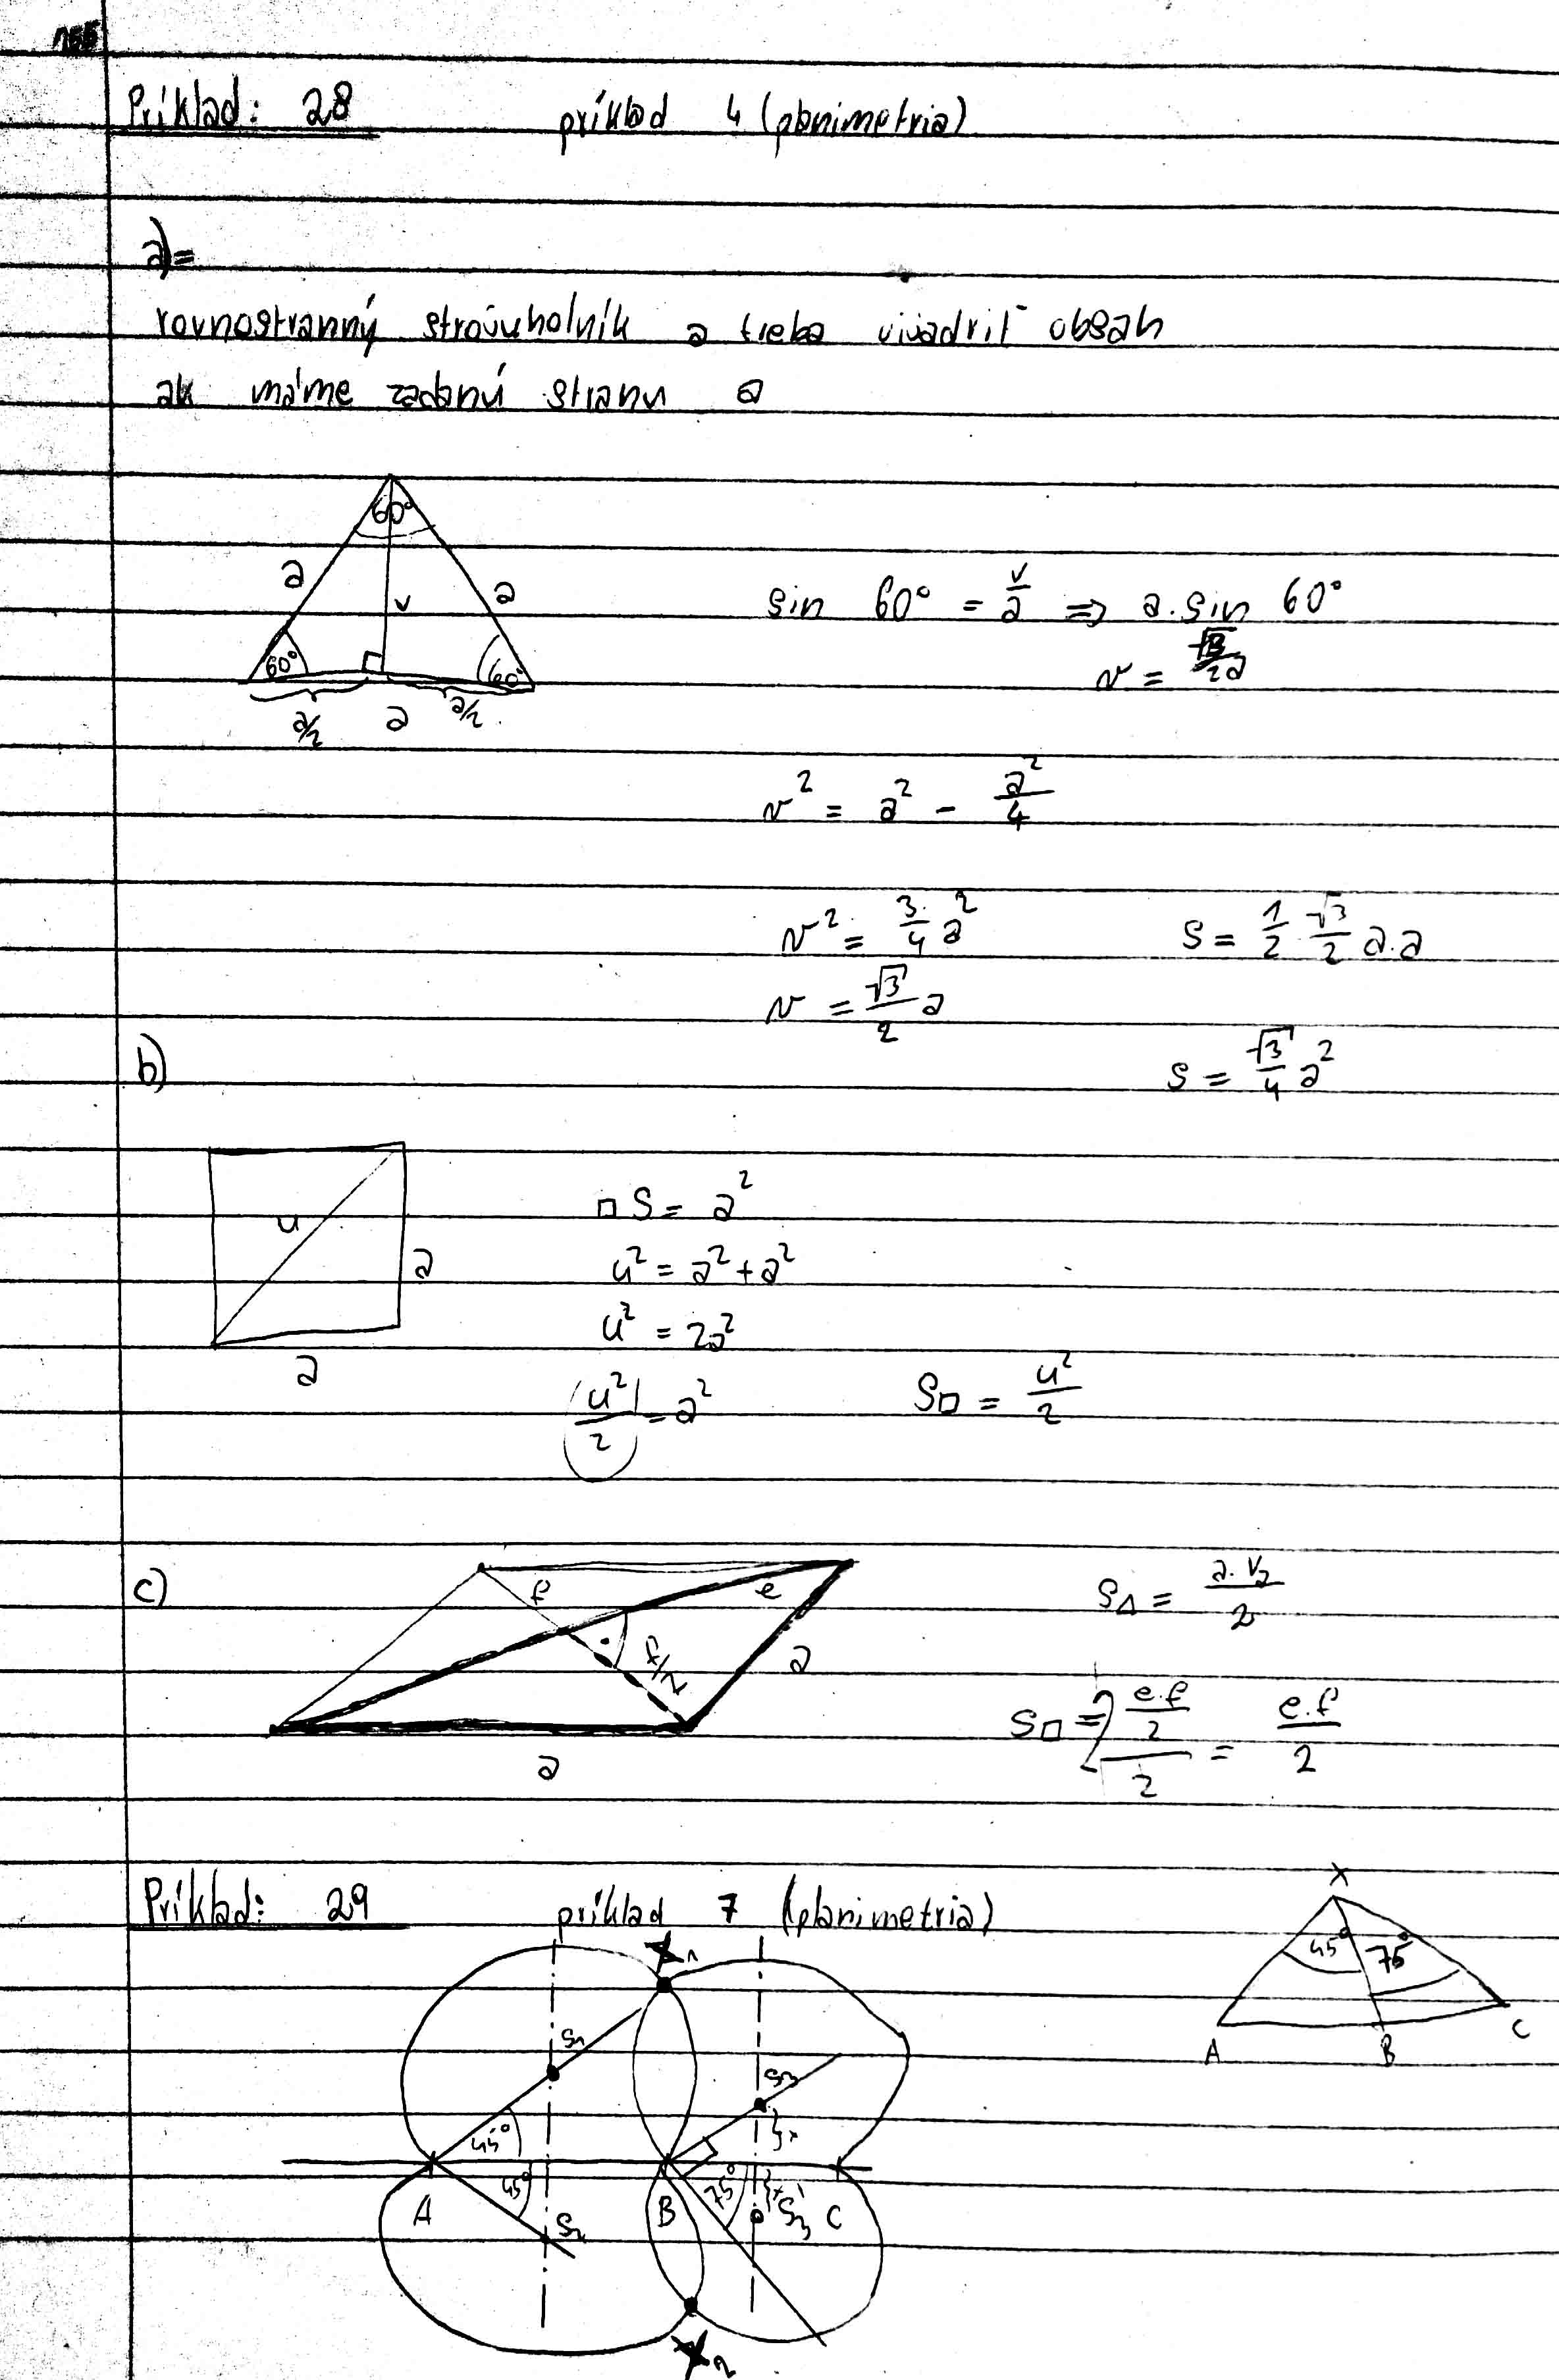 155
Príklad: 28 príklad 4 (planimetria)
a)=
rovnostranný strojuholník a treba vijadriť obsah
ak máme zadanú stranu a
60°
a v a
60° 60°
a/2 a a/2
sin 60° = v/a => a. sin 60°
v = √3/2a
v² = a² - a²/4
v² = 3/4 a² S = 1/2 . √3/2 a.a
v = √3/2 a
b) S = √3/4 a²
u
a
a
□ S = a²
u² = a² + a²
u² = 2a²
u²/2 = a² S□ = u²/2
c) f e
f/2 a
a
S∆ = a.va/2
S□ = 2 e.f/2/2 = e.f/2
Príklad: 29 príklad 7 (planimetria)
X
45° 75°
A B C
X1
S1 S3
45° }x
45° 75° }x
A B S3' C
S2
X2